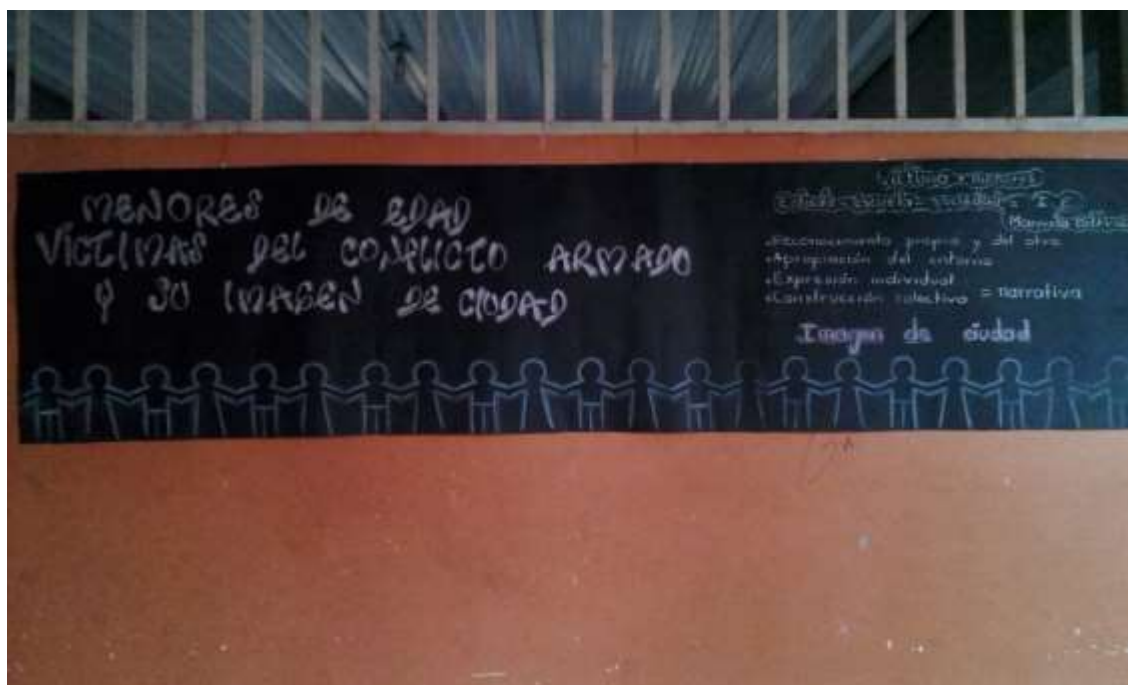 MENORES DE EDAD
VICTIMAS DEL CONFLICTO ARMADO
Y SU IMAGEN DE CIUDAD
•Reconocimiento propio y del otro
•Apropiación del entorno
•Expresión individual
•Construcción colectiva = narrativa
Imagen de ciudad